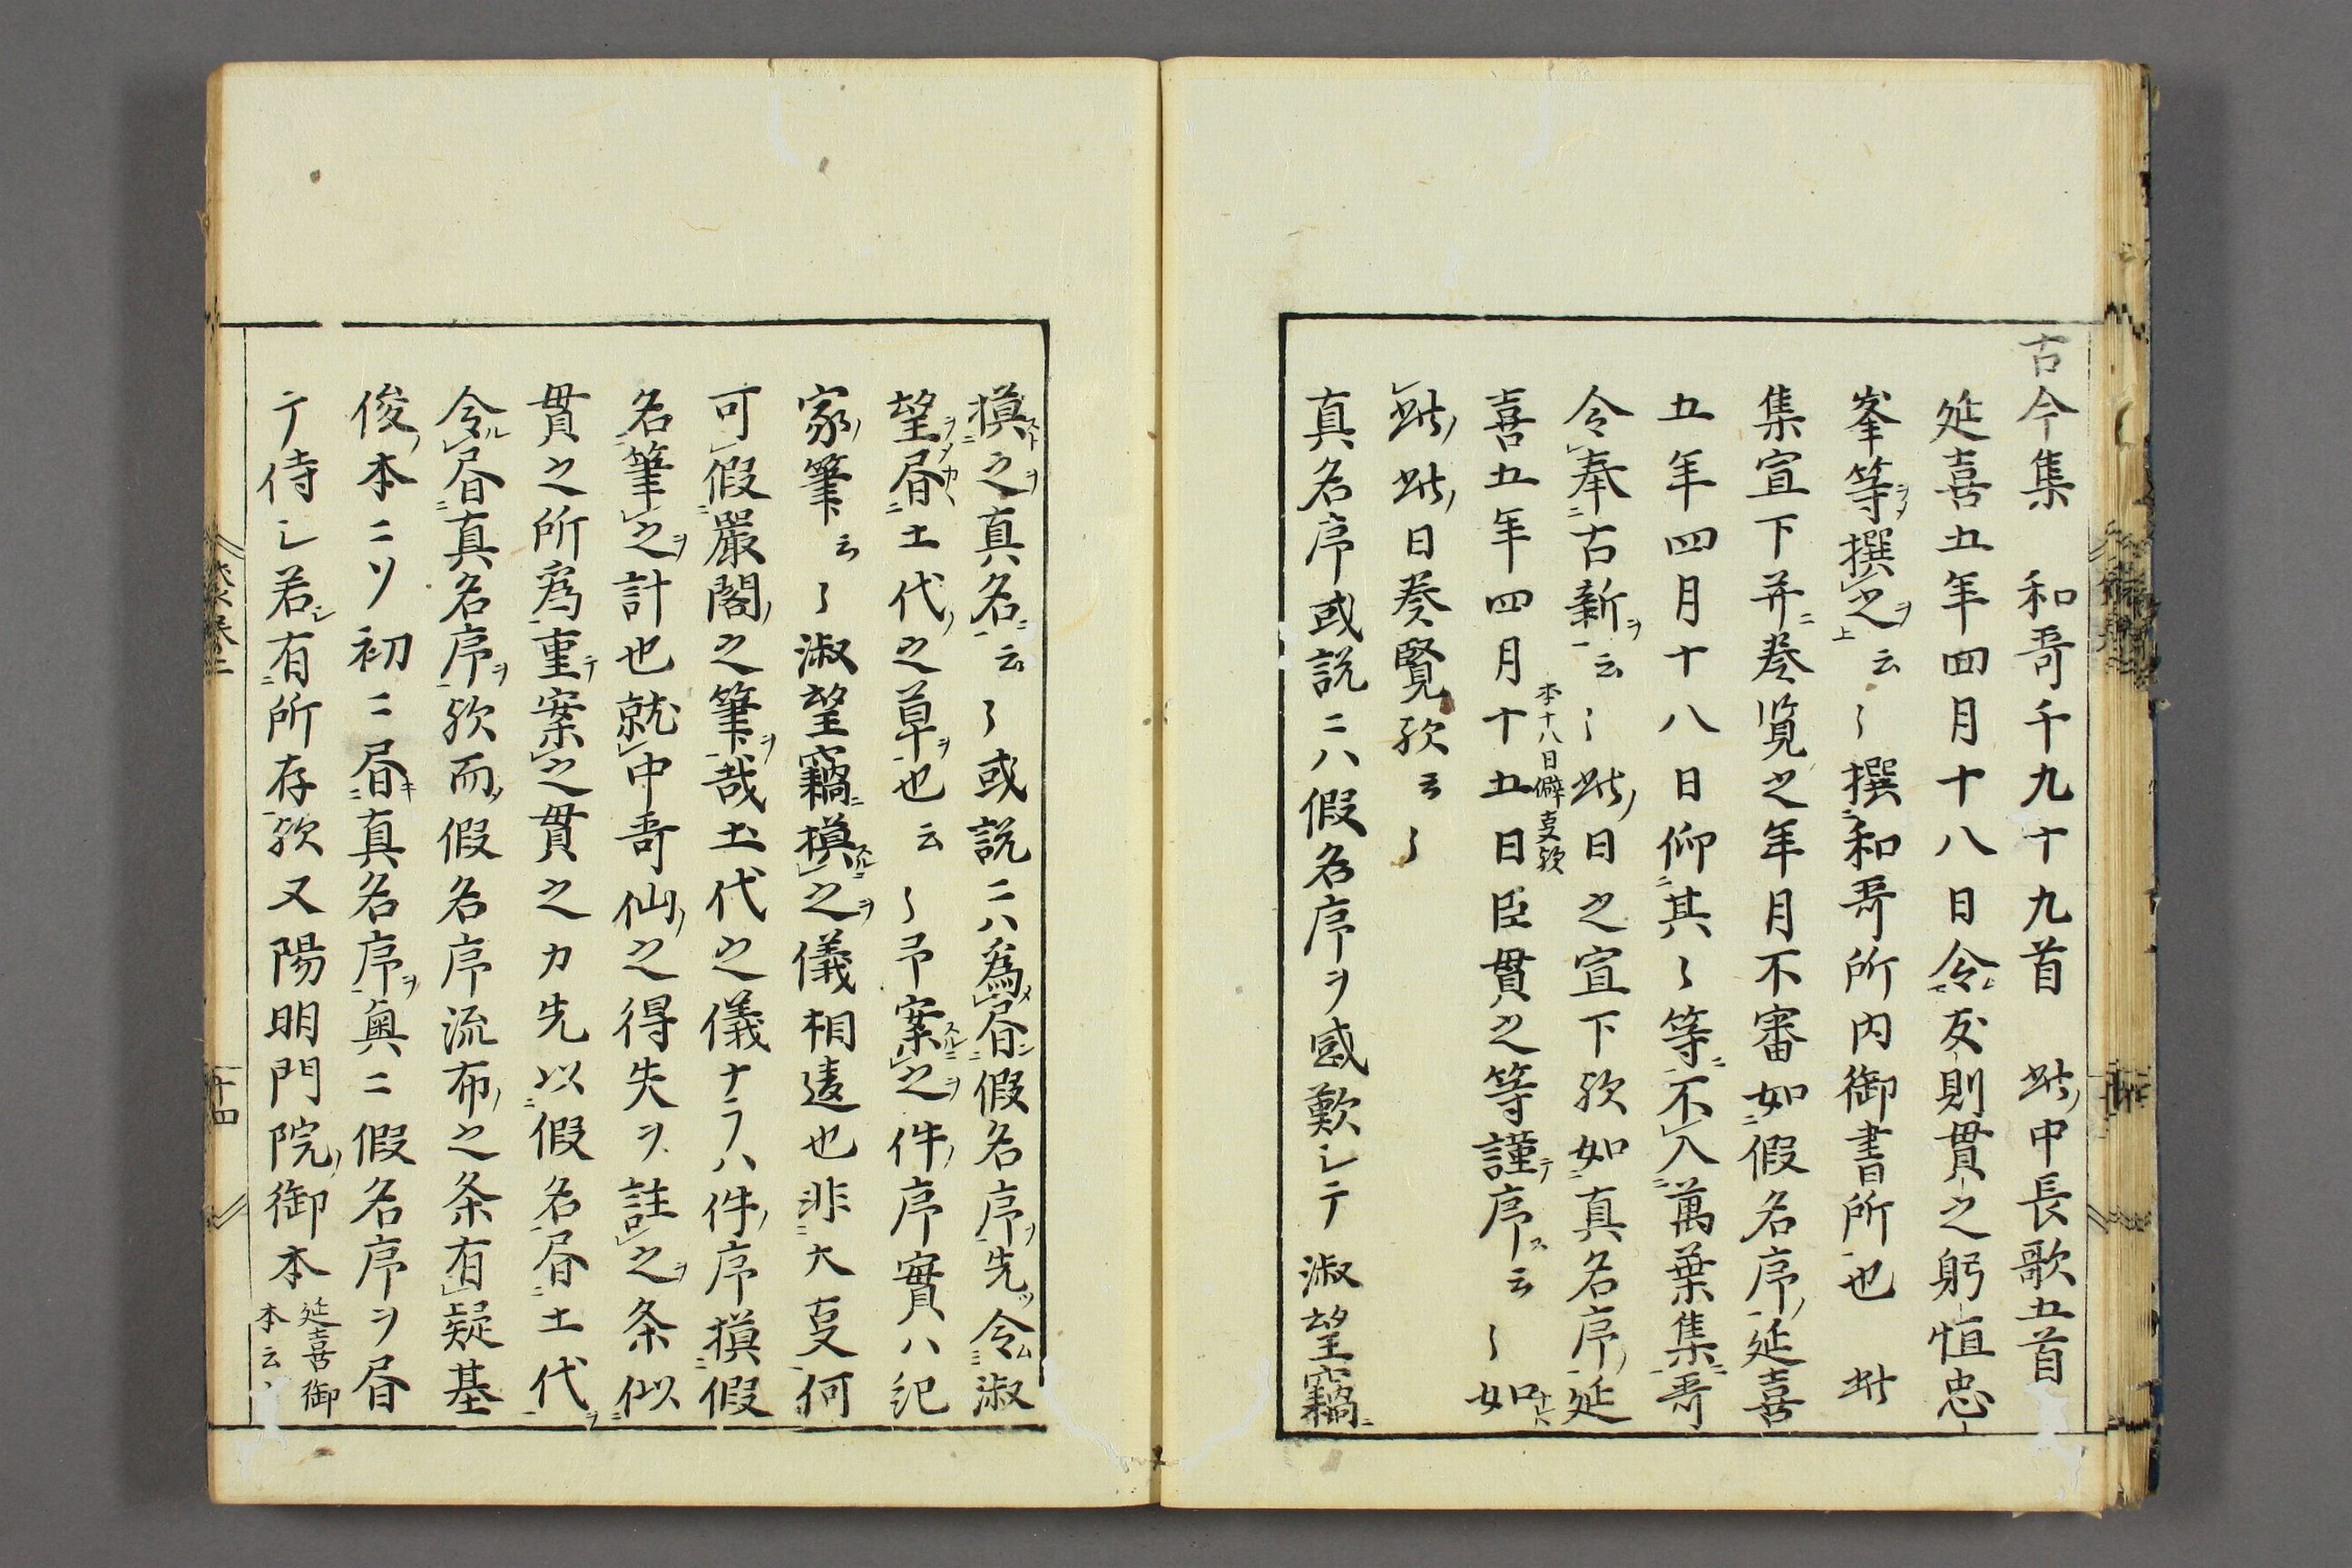 古今集　和哥千九十九首　此ノ中長歌五首
延喜五年四月十八日令友則貫之躬恒忠
峯等撰之云〻撰和哥所内御書所也　此
集宣下并奏覧之年月不審如假名序ノ延喜
五年四月十八日仰其〻等不入萬葉集哥
令奉古新云〻此ノ日之宣下歟如真名序ノ延
本十八日僻叓歟
喜五年四月十五日臣貫之等謹序云〻如
此ノ此ノ日奏覧歟云〻
真名序或説ニハ假名序ヲ感歎シテ淑望竊
摸之真名云〻或説ニハ為昼假名序ヲ先令淑
望昼土代ノ之草也云〻予案之件ノ序實ハ紀
家ノ筆云〻淑望竊摸之儀相違也非大叓何
可假嚴閣ノ之筆哉土代之儀ナラハ件ノ序摸假
名筆之計也就中哥仙ノ之得失ヲ註之条似
貫之所為重案之貫之カ先以假名昼土代
令昼真名序歟而假名序流布ノ之条有疑基
俊ノ本ニソ初ニ昼真名序奥ニ假名序ヲ昼
テ侍シ若有所存歟又陽明門院ノ御本
延喜御
本云〻
十四